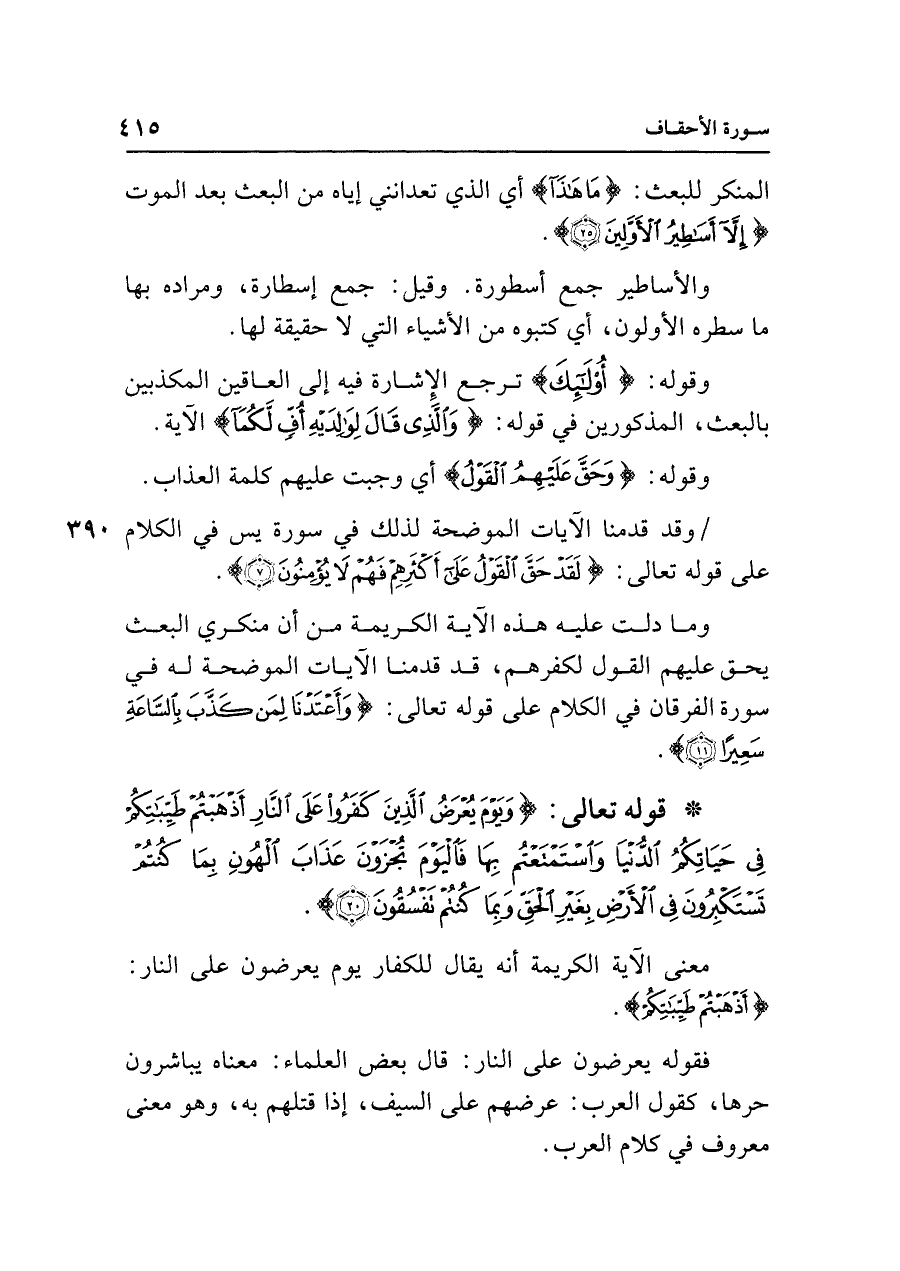 سورة الأحقاف ٤١٥
المنكر للبعث: ﴿مَا هَٰذَآ﴾ أي الذي تعدانني إياه من البعث بعد الموت
﴿إِلَّآ أَسَٰطِيرُ ٱلْأَوَّلِينَ ١٧﴾.
والأساطير جمع أسطورة. وقيل: جمع إسطارة، ومراده بها
ما سطره الأولون، أي كتبوه من الأشياء التي لا حقيقة لها.
وقوله: ﴿أُوْلَٰٓئِكَ﴾ ترجع الإشارة فيه إلى العاقين المكذبين
بالبعث، المذكورين في قوله: ﴿وَٱلَّذِى قَالَ لِوَٰلِدَيْهِ أُفٍّ لَّكُمَآ﴾ الآية.
وقوله: ﴿وَحَقَّ عَلَيْهِمُ ٱلْقَوْلُ﴾ أي وجبت عليهم كلمة العذاب.
/ وقد قدمنا الآيات الموضحة لذلك في سورة يس في الكلام ٣٩٠
على قوله تعالى: ﴿لَقَدْ حَقَّ ٱلْقَوْلُ عَلَىٰٓ أَكْثَرِهِمْ فَهُمْ لَا يُؤْمِنُونَ ٧﴾.
وما دلت عليه هذه الآية الكريمة من أن منكري البعث
يحق عليهم القول لكفرهم، قد قدمنا الآيات الموضحة له في
سورة الفرقان في الكلام على قوله تعالى: ﴿وَأَعْتَدْنَا لِمَن كَذَّبَ بِٱلسَّاعَةِ
سَعِيرًا ١١﴾.
* قوله تعالى: ﴿وَيَوْمَ يُعْرَضُ ٱلَّذِينَ كَفَرُوا۟ عَلَى ٱلنَّارِ أَذْهَبْتُمْ طَيِّبَٰتِكُمْ
فِى حَيَاتِكُمُ ٱلدُّنْيَا وَٱسْتَمْتَعْتُم بِهَا فَٱلْيَوْمَ تُجْزَوْنَ عَذَابَ ٱلْهُونِ بِمَا كُنتُمْ
تَسْتَكْبِرُونَ فِى ٱلْأَرْضِ بِغَيْرِ ٱلْحَقِّ وَبِمَا كُنتُمْ تَفْسُقُونَ ٢٠﴾.
معنى الآية الكريمة أنه يقال للكفار يوم يعرضون على النار:
﴿أَذْهَبْتُمْ طَيِّبَٰتِكُمْ﴾.
فقوله يعرضون على النار: قال بعض العلماء: معناه يباشرون
حرها، كقول العرب: عرضهم على السيف، إذا قتلهم به، وهو معنى
معروف في كلام العرب.